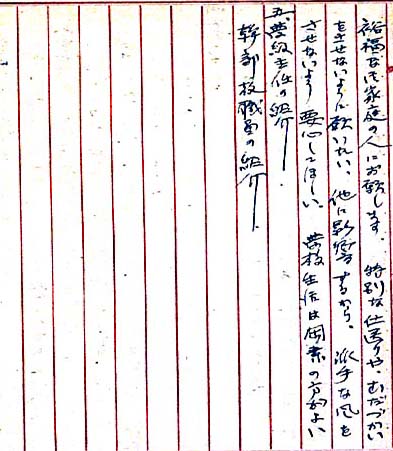 裕福な家庭の人にお願します。特別な仕送りや、むだづかい
をさせないように願いたい、他に影響するから、派手な風を
させないよう要心してほしい 学校生活は簡素の方がよい
五、学級主任の紹介
幹部校職員の紹介